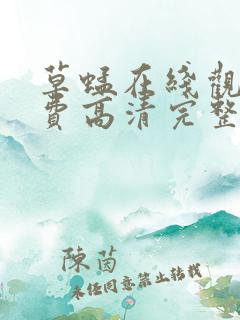 草蜢在綫觀
費高清完整
陳茵
未经同意禁止转载